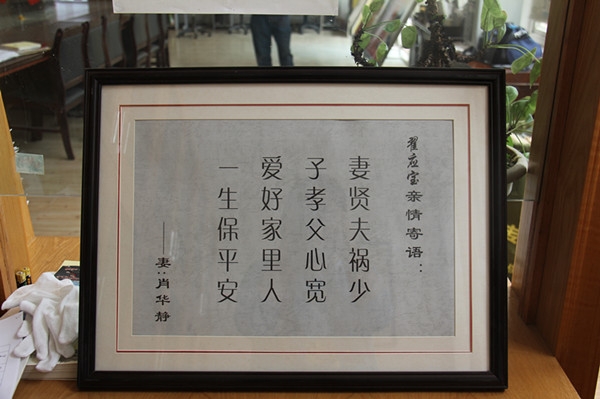 翟应宝亲情寄语：
妻贤夫祸少
子孝父心宽
爱好家里人
一生保平安
——妻：肖华静